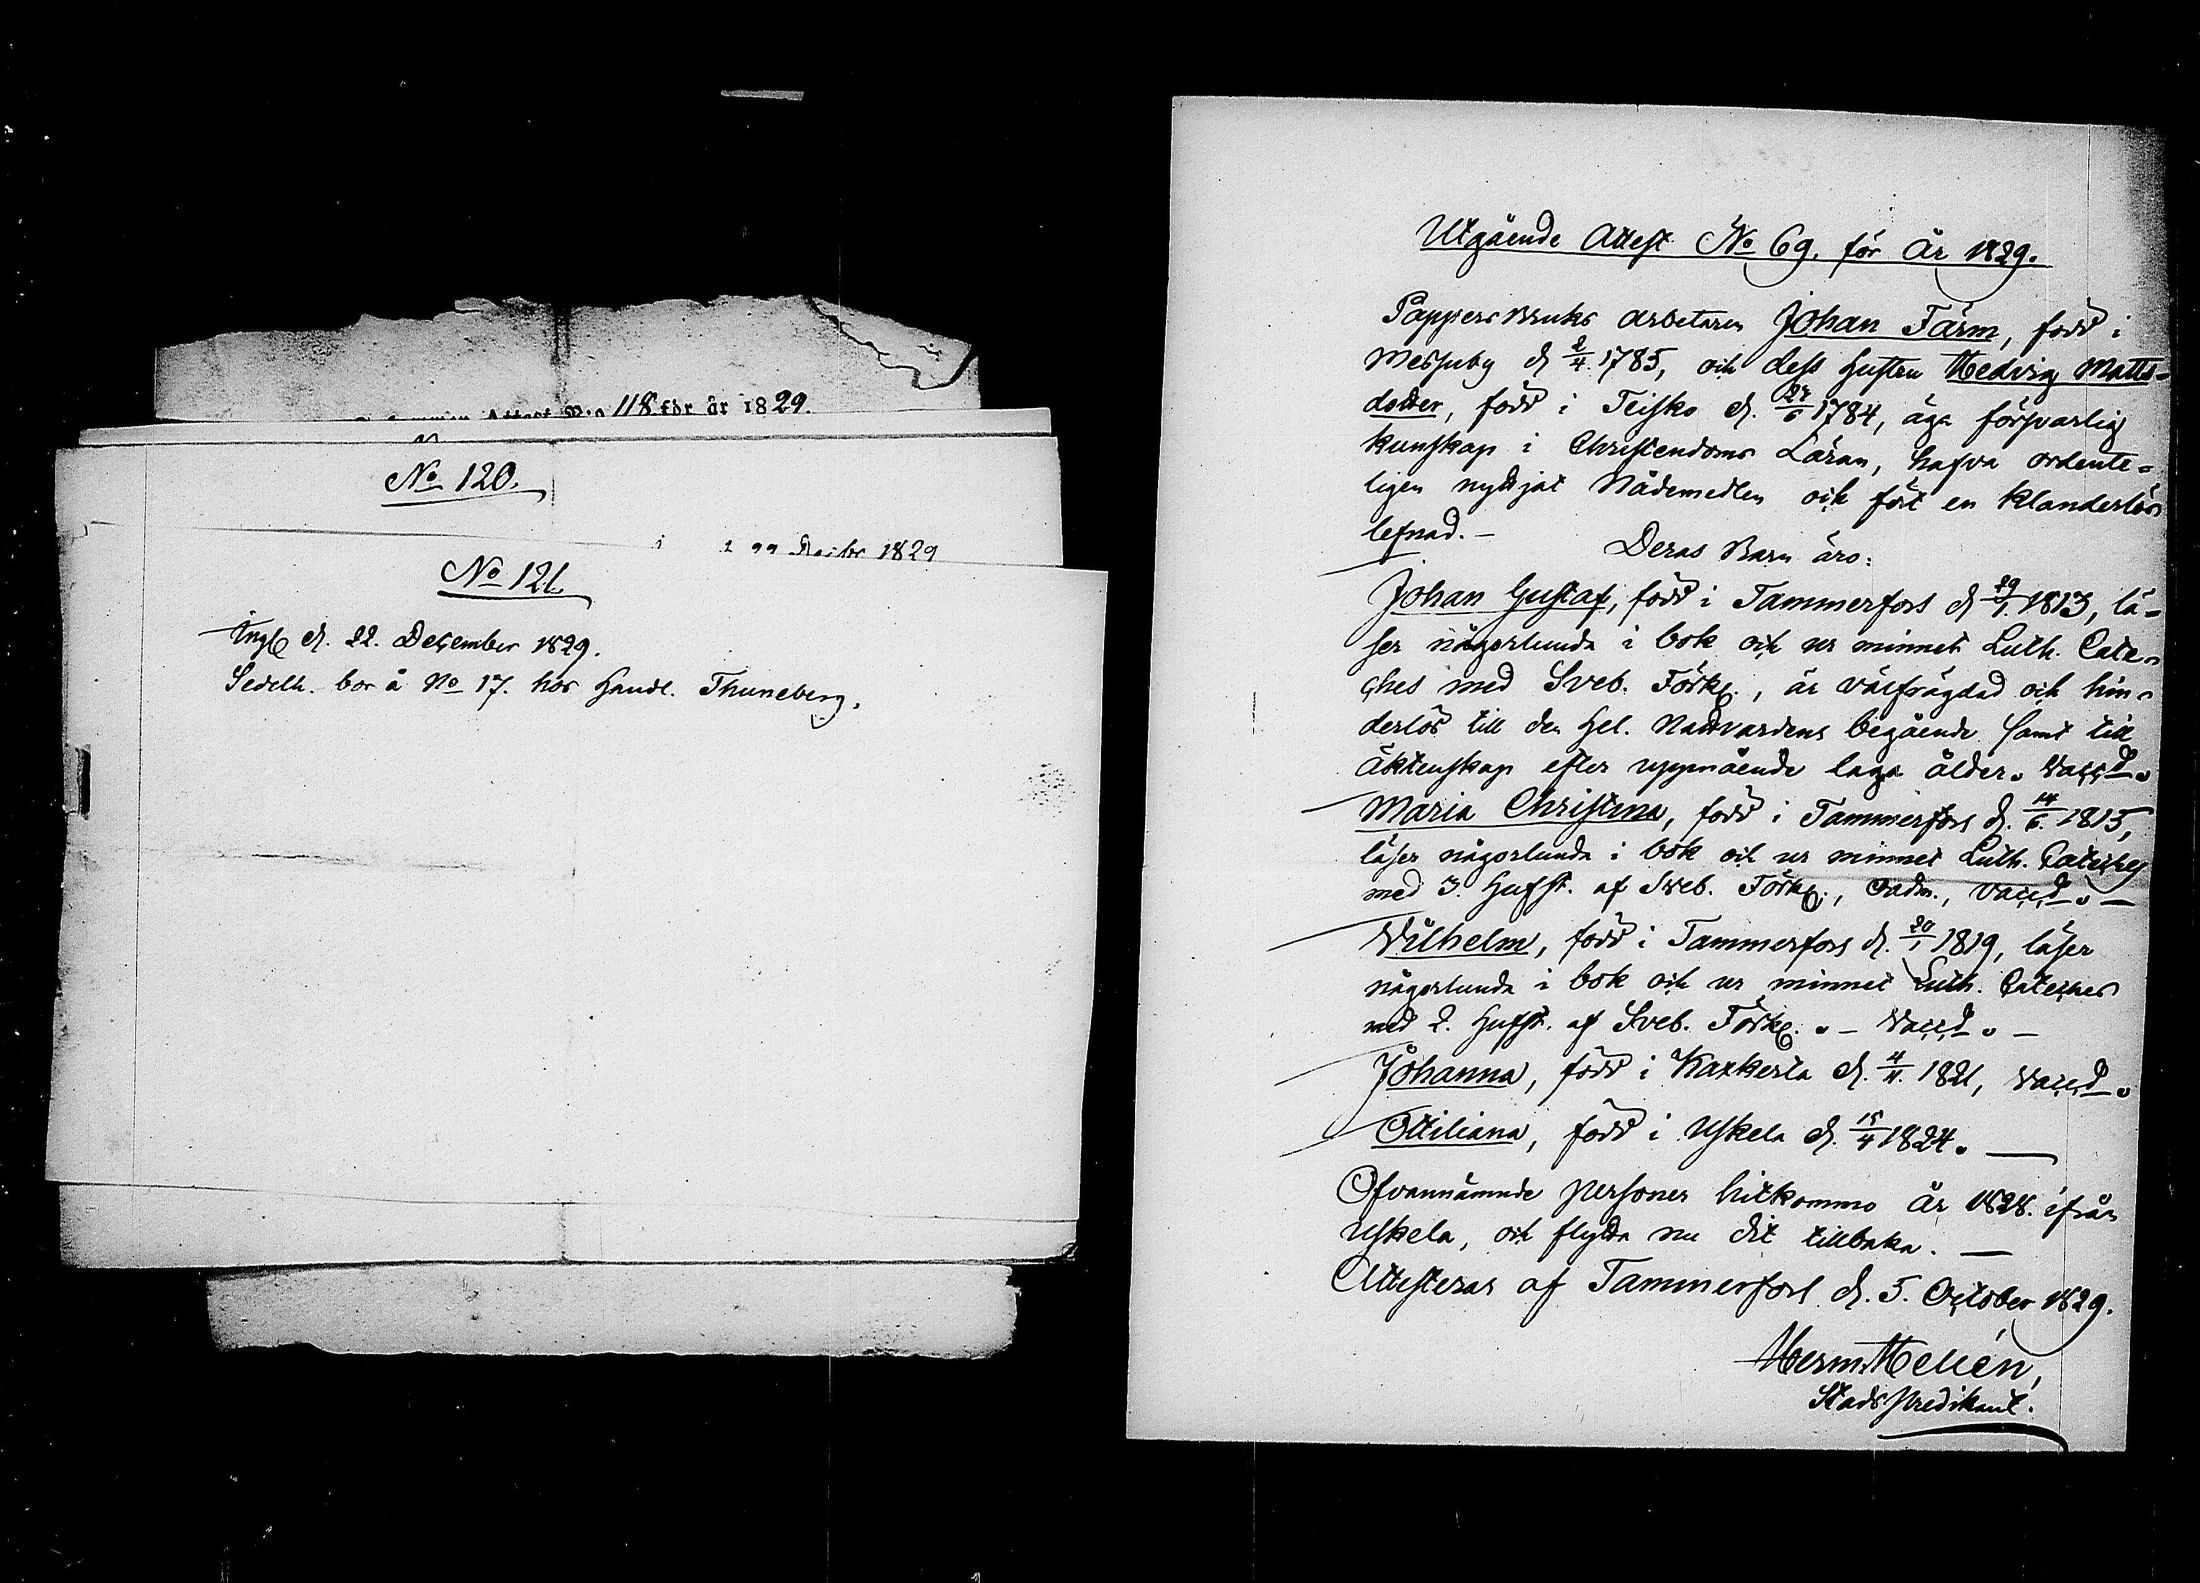 Attest N:o 118 för år 1829.
No 120.
1829
No 121.
Ingl. d. 22. December 1829.
Sedelh. bor å No 17. hos Handl. Thuneberg.
Utgående Attest No 69. för År 1829.
Pappersbruks arbetaren Johan Färm, född i
Messuby d. 2/4. 1785, och dess hustru Hedvig Matts-
dotter, född i Teisko d. 27/6 1784, äga försvarlig
kunskap i Christendoms Läran, hafva ordente-
ligen nyttjat Nådemedlen och fört en klanderlös
lefnad. –
Deras Barn äro:
Johan Gustaf, född i Tammerfors d. 29/1. 1813, lä-
ser någorlunda i bok och ur minnet Luth. Cate-
ches med Sveb. Förkl., är välfrägdad och hin-
derlös till den Hel. Nattvardens begående samt till
Äktenskap efter uppnående laga ålder. Vacc.d.
Maria Christina, född i Tammerfors d. 14/6. 1815,
läser någorlunda i bok och ur minnet Luth. Cateches
med 3. Hufst. af Sveb. Förkl., Oadm., Vacc.d. –
Wilhelm, född i Tammerfors d. 20/1 1819, läser
någorlunda i bok och ur minnet Luth. Cateches
med 2. Hufst. af Sveb. Förkl. – Vacc.d. –
Johanna, född i Kaxkerta d. 4/11. 1821, Vacc.d.
Ottiliana, född i Uskela d. 15/4 1824. —
Ofvannämnde personer hitkommo År 1828. ifrån
Uskela, och flytta nu dit tillbaka. —
Attesteras af Tammerfors d. 5. October 1829.
Herm. Hellén,
Stads Predikant.